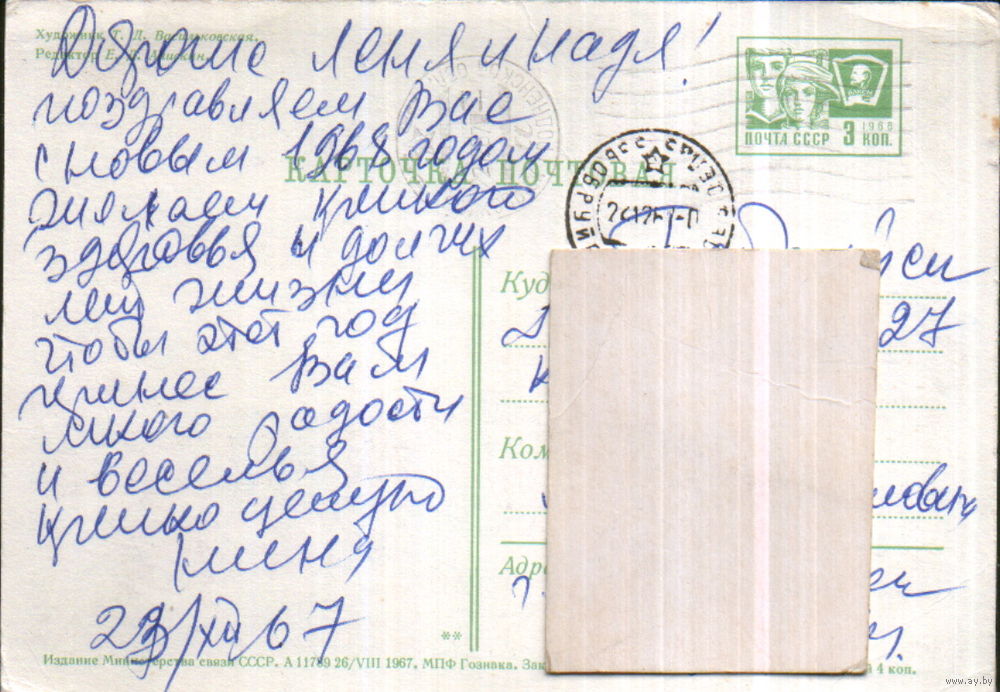 Художник Т. Д. Васильковская.
Редактор Е. Д. Мишкин.
Дорогие Леня и Надя!
поздравляем Вас
с новым 1968 годом
желаем крепкого
здоровья и долгих
лет жизни
чтобы этот год
принес Вам
много радости
и веселья
крепко целую
29/XII 67
ПОЧТА СССР 3 КОП.
1966
ВЛКСМ
КАРТОЧКА ПОЧТОВАЯ
Куд
27
Ком
Адре
г.
**
Издание Министерства связи СССР. А 11789 26/VIII 1967. МПФ Гознака. Зак
4 коп.
www.ay.by